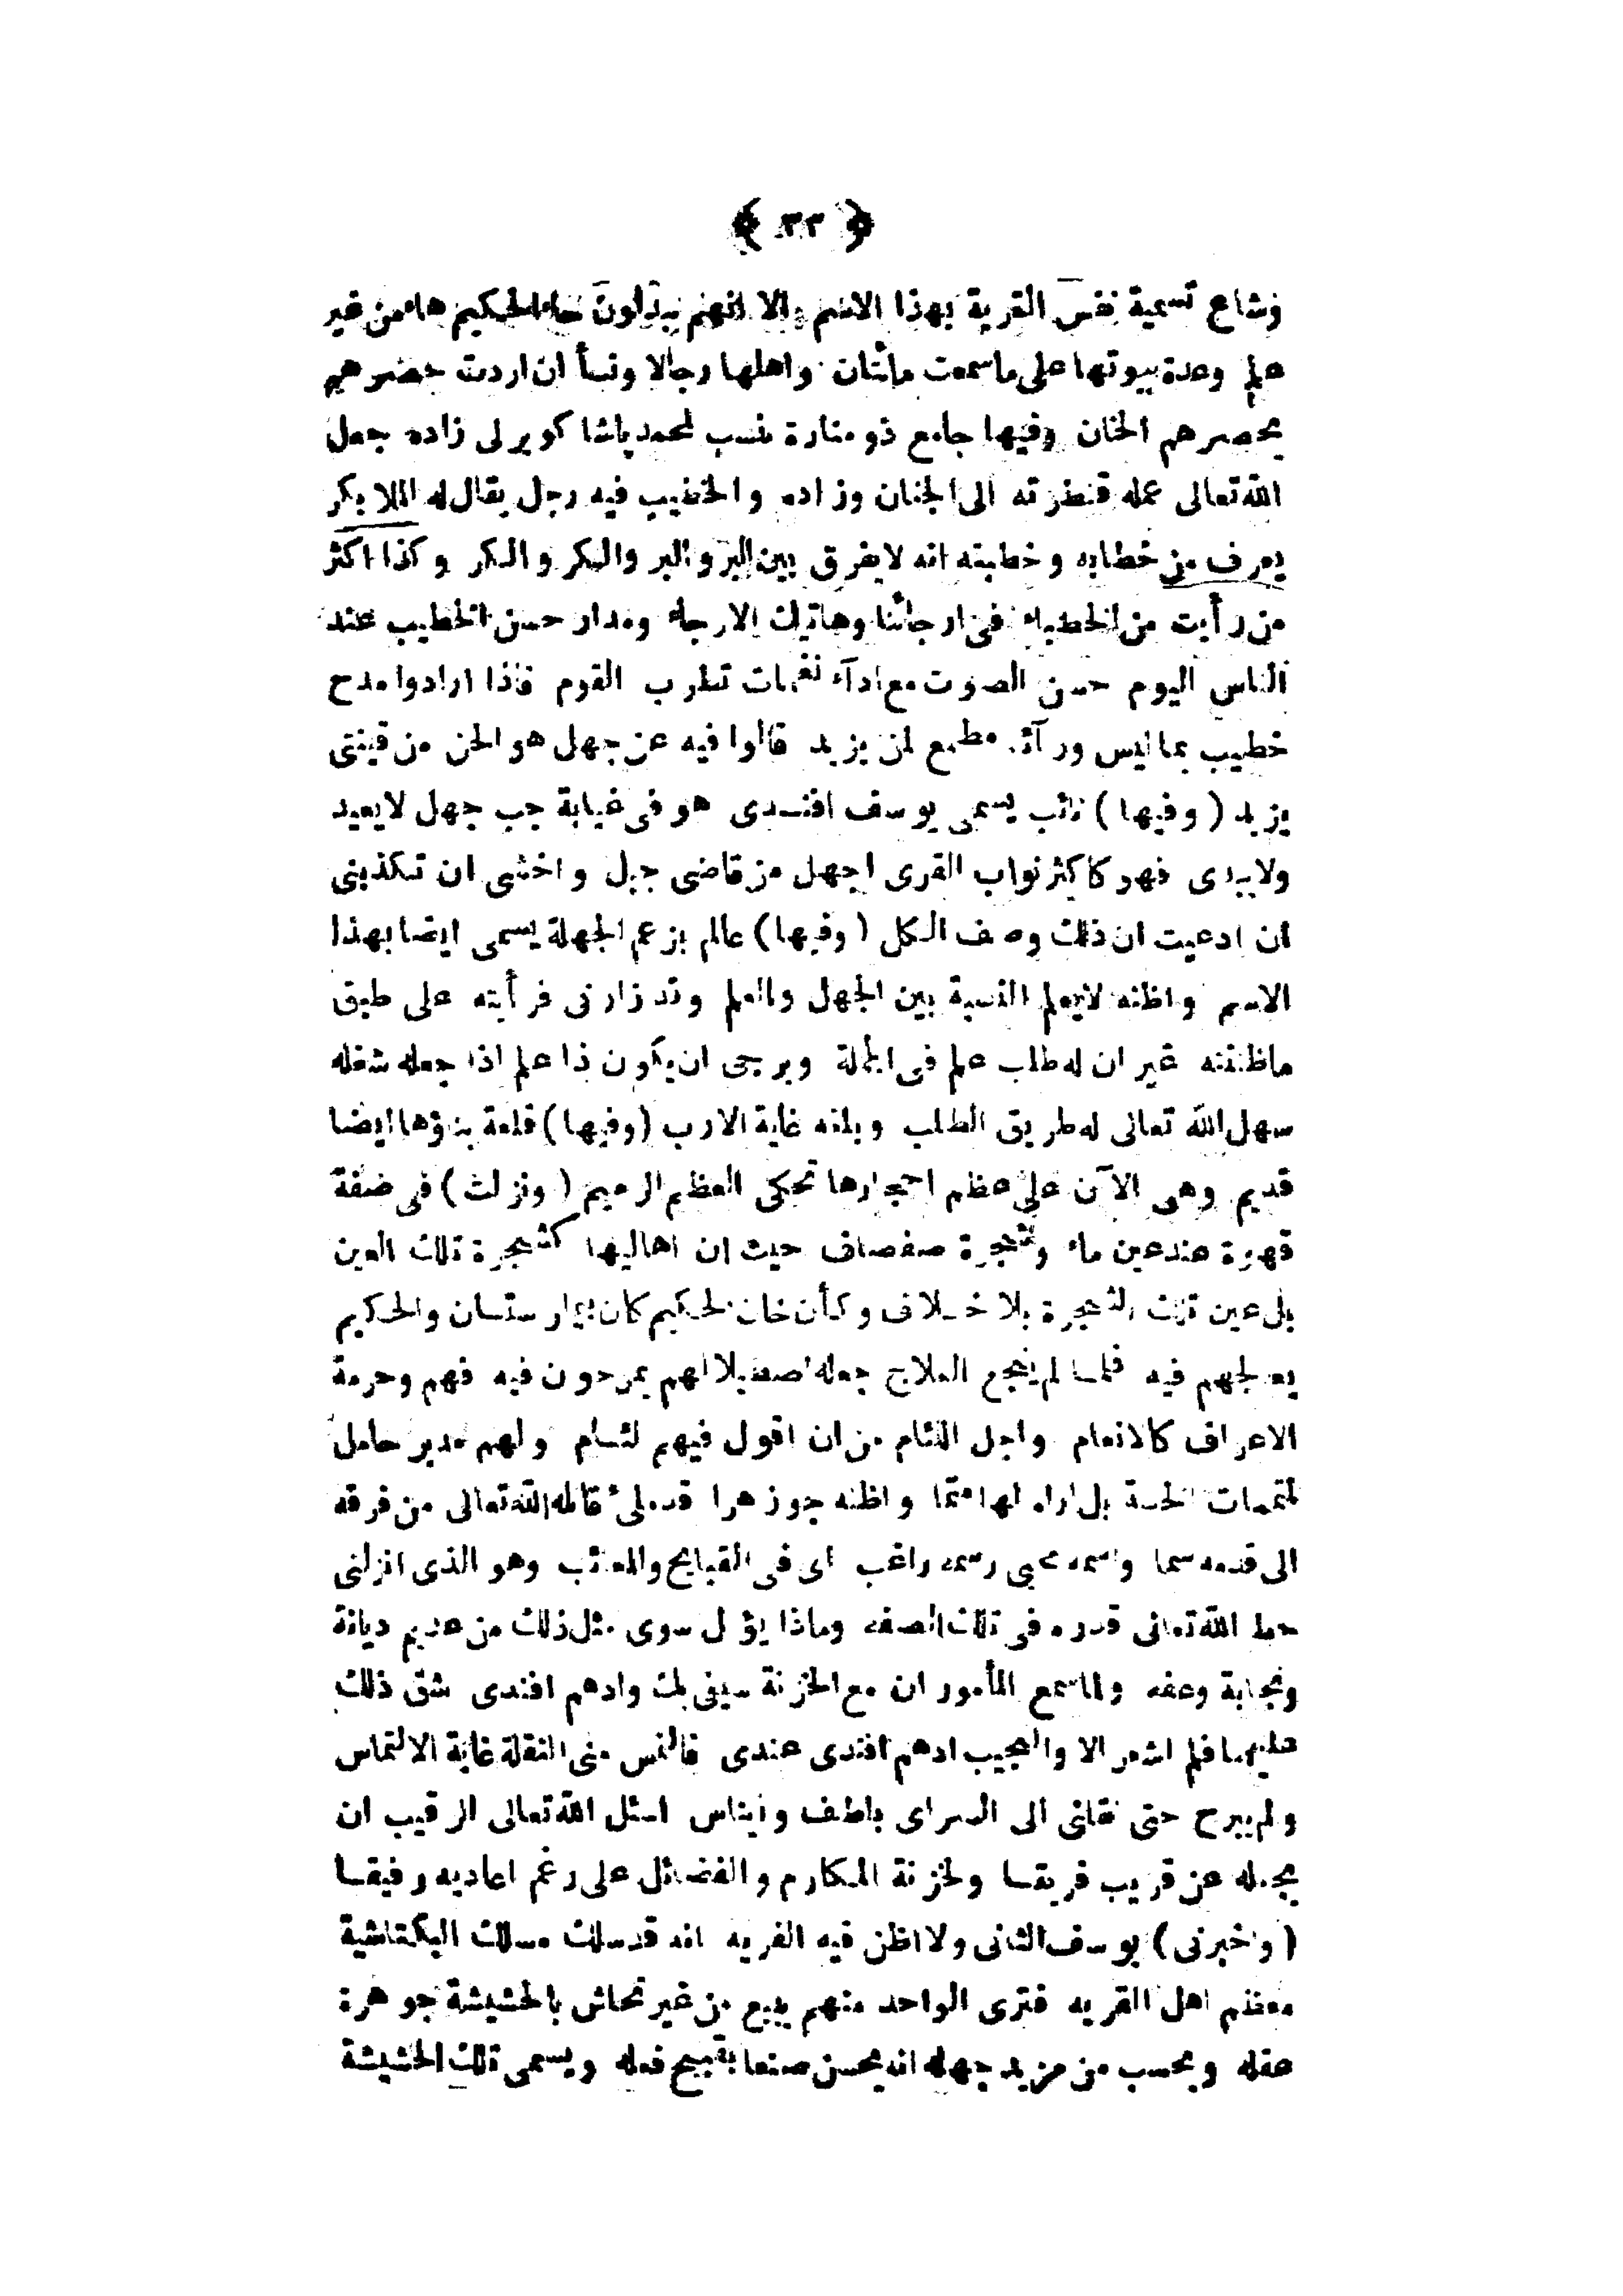 ﴿ ٣٣ ﴾
وشاع تسمية نفس القرية بهذا الاسم والا انهم يبدلون حاء الحكيم هاء من غير
علم وعدة بيوتها على ما سمعت مائتان واهلها رجالا ونسأ ان اردت حصرهم
يحصرهم الخان وفيها جامع ذو منارة ينسب لمحمد پاشا كوبرلى زاده جعل
الله تعالى عمله قنطرته الى الجنان وزاده والخطيب فيه رجل يقال له الملا بكر
يعرف من خطابه وخطبته انه لا يفرق بين البر والبر والبكر والبكر وكذا اكثر
من رأيت من الخطباء فى ارجائنا وهاتيك الارجاء ومدار حسن الخطيب عند
الناس اليوم حسن الصوت مع ادآء نغمات تطرب القوم فاذا ارادوا مدح
خطيب بما ليس ورآئه مطمع لمن يزيد قالوا فيه عن جهل هو الحن من قينتى
يزيد ( وفيها ) نائب يسمى يوسف افندى هو فى غيابة جب جهل لا يعيد
ولا يبدى فهو كاكثر نواب القرى اجهل من قاضى جبل واخشى ان تكذبنى
ان ادعيت ان ذلك وصف الكل ( وفيها ) عالم بزعم الجهلة يسمى ايضا بهذا
الاسم واظنه لا يعلم النسبة بين الجهل والعلم وقد زارنى فرأيته على طبق
ما ظننته غير ان له طلب علم فى الجملة ويرجى ان يكون ذا علم اذا جعله شغله
سهل الله تعالى له طريق الطلب وبلغه غاية الارب ( وفيها ) قلعة بناؤها ايضا
قديم وهى الآن على عظم احجارها تحكى العظم الرميم ( ونزلت ) فى ضفة
قهوة عند عين ماء وشجرة صفصاف حيث ان اهاليها كشجرة تلك العين
بل عين تلك الشجرة بلا خلاف وكأن خان الحكيم كان بيمارستان والحكيم
يعالجهم فيه فلما لم ينجع العلاج جعله اصطبلا لهم يمرحون فيه فهم وحرمة
الاعراف كالانعام واجل اللئام من ان اقول فيهم لئام ولهم مدير حامل
لمتممات الخسة بل اراه لها متمما واظنه جوزهرا قد ملئ قاتله الله تعالى من فرقه
الى قدمه سما واسمه رسمه راغب اى فى القبايح والمعائب وهو الذى انزلنى
حط الله تعالى قدره فى تلك الضفه وماذا يؤمل سوى مثل ذلك من عديم ديانة
ونجابة وعفه ولما سمع المأموران مع الخزنة سيفى بك وادهم افندى شق ذلك
عليهما فلم اشعر الا والعجيب ادهم افندى عندى فالتمس منى النقلة غاية الالتماس
ولم يبرح حتى نقلنى الى السراى بلطف وايناس اسئل الله تعالى الرقيب ان
يجعله عن قريب فريقا ولخزنة المكارم والفضائل على رغم اعاديه رفيقا
( واخبرنى ) يوسف الثانى ولا اظن فيه الفريه انه قد سلك مسلك البكتاشية
معظم اهل القريه فترى الواحد منهم يبيع من غير تحاش بالحشيشة جوهرة
عقله ويحسب من مزيد جهله انه يحسن صنعا بقبيح فعله ويسمى تلك الحشيشة